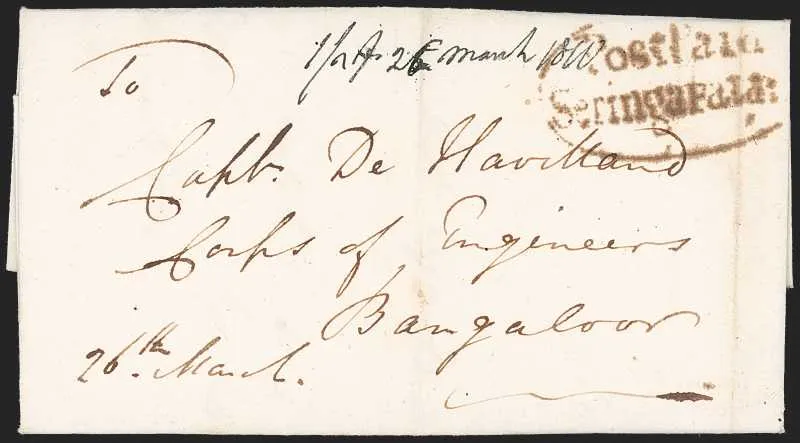 26 March 18
Post Paid
Seringapatam
To
Captn. De Havilland
Corps of Engineers
Bangaloor
26th. March.